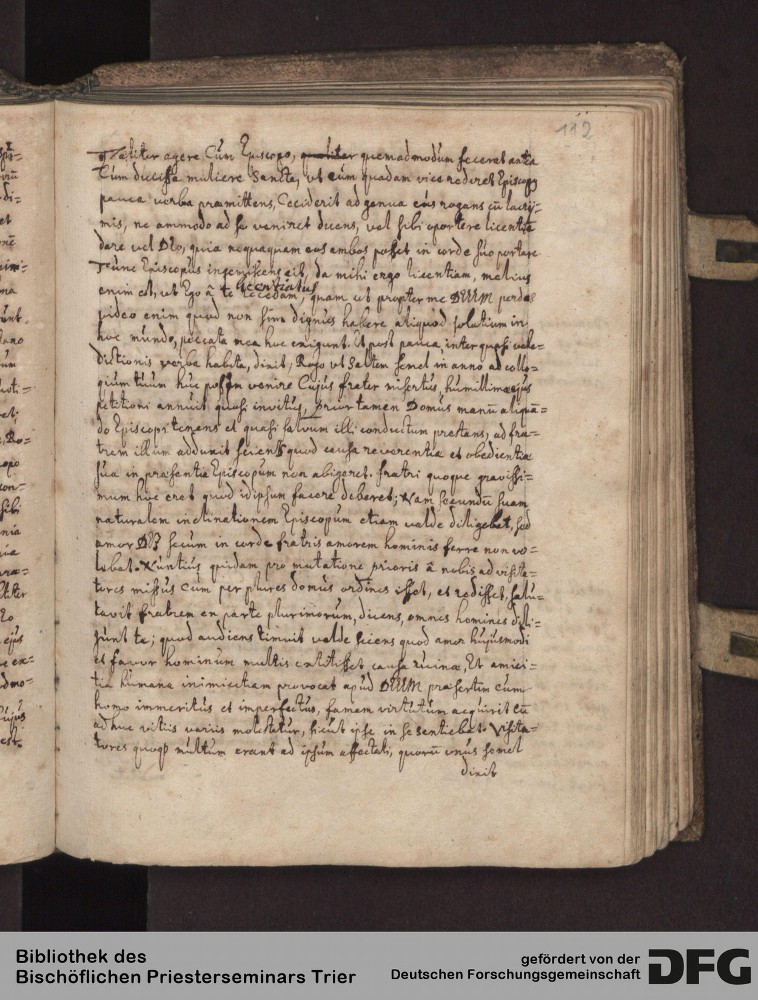 112
taliter agere Cum Episcopo, qualiter quemadmodum fecerat antea
Cum muliere Sancta, ut cum quadam vice rediret Episcopq
pauca verba præmittens, Ceciderit ad genua eius rogans cū lacrij=
mis, ne ammodo ad se veniret dicens, vel sibi oportere licentiā
dare vel DEo, quia nequaquam eos ambos posset in corde suo portare
Tunc Episcopus ingemiscens ait, da mihi ergo licentiam, melius
licentiatus
enim est, ut Ego â te recedam, quam ut propter me DEUM perdas
video enim quod non sim dignus habere aliquod solatium in
hoc mundo, peccata mea hoc exigunt. Et post pauca inter quasi vale=
dictionis verba habita, dixit, Rogo ut Saltem semel in anno ad collo=
quium tuum huc possim venire Cujus frater misertus, humillimæ ejus
petitioni annuit quasi invitus, prior tamen Domus manū aliquā=
do Episcopi tenens et quasi salvum illi conductum præstans, ad fra=
trem illum adduxit sciens quod causa reverentiæ et obedientiæ
suæ in præsentia Episcopum non abigeret. fratri quoque gravissi=
mum hoc erat quod idipsum facere deberet; Nam secundū suam
naturalem inclinationem Episcopum etiam valde diligebat, sed
amor DEI secum in corde fratris amorem hominis ferre non vo=
lebat. Nuntius quidam pro mutatione prioris â nobis ad visita=
tores missus cum per plures domus ordinis isset, et rediisset, salu=
tavit fratrem ex parte plurimorum, dicens, omnes homines dili=
gunt te; quod audiens timuit valde sciens quod amor hujusmodi
et favor hominum multis extitisset causa ruinæ, Et amici=
tia humana inimicitiam provocat apud DEUM præsertim cum
homo immeritus et imperfectus, famam virtutum acquirit cū
adhuc vitiis variis molestatur, sicut ipse in se sentiebat. Visita=
tores quoqꝫ multum erant ad ipsum affectati, quorū unus semel
dixit
Bibliothek des
Bischöflichen Priesterseminars Trier
gefördert von der
Deutschen Forschungsgemeinschaft
DFG